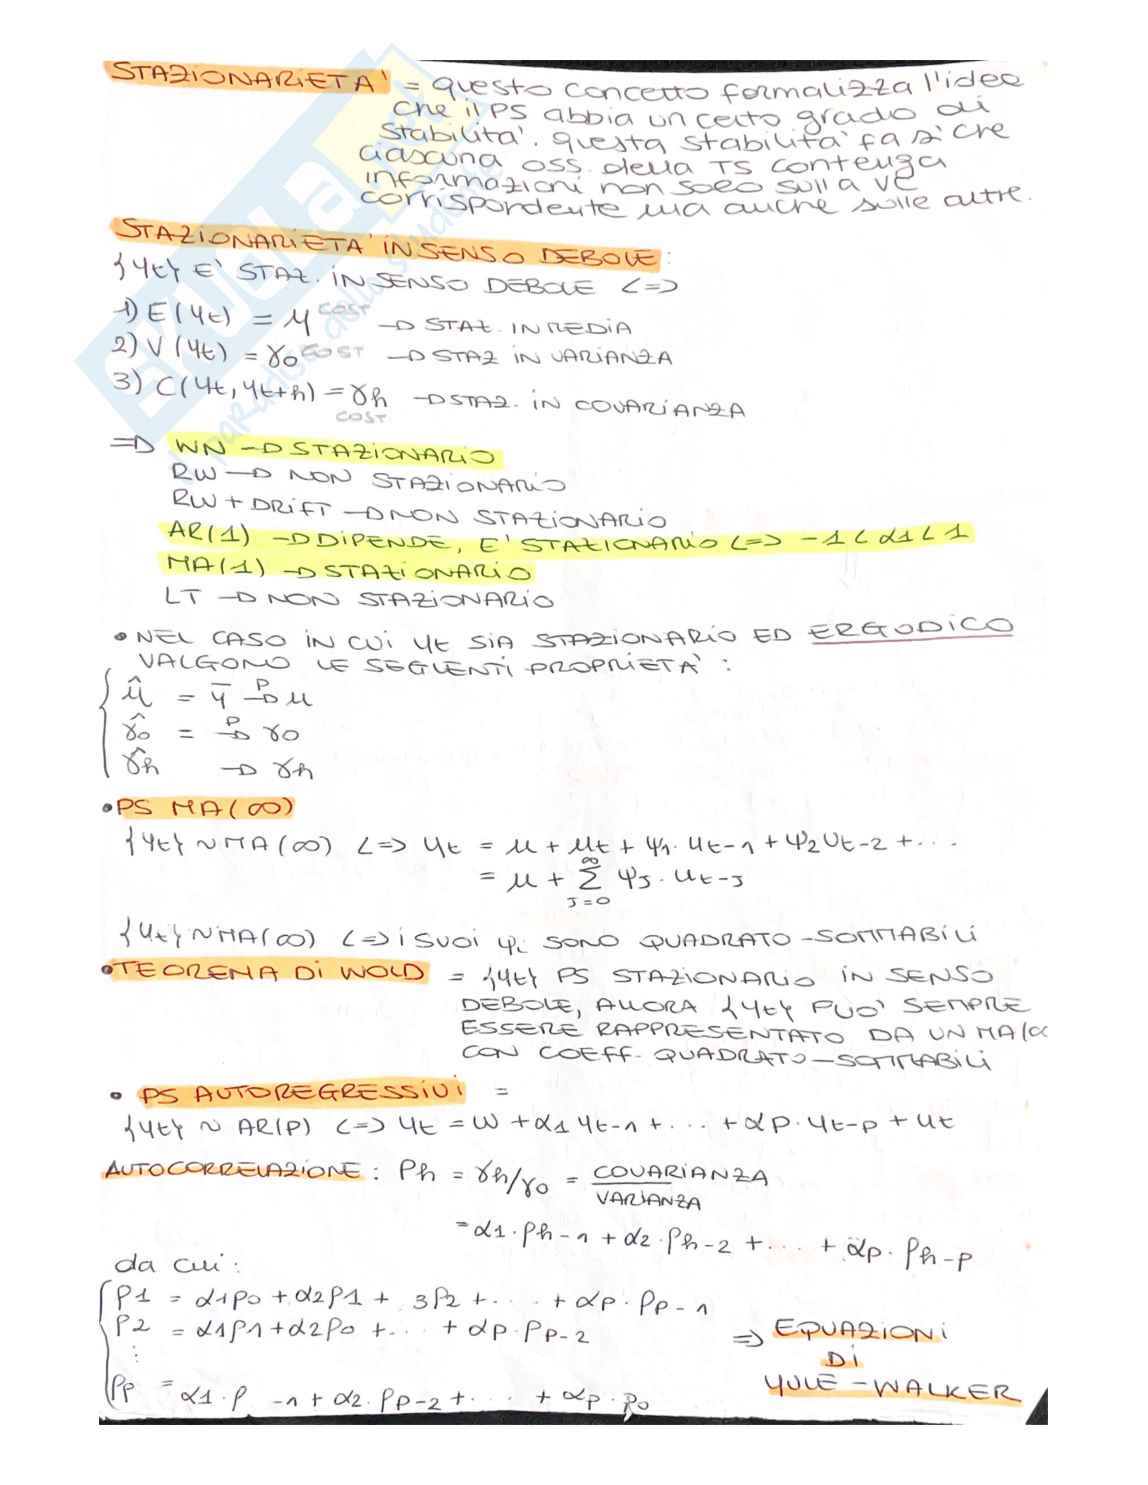 STAZIONARIETA' = questo concetto formalizza l'idea
che il PS abbia un certo grado di
stabilita'. questa stabilita' fa sì che
ciascuna oss. della TS contenga
informazioni non solo sulla VC
corrispondente ma anche sulle altre.
STAZIONARIETA' IN SENSO DEBOLE:
{yt} E' STAZ. IN SENSO DEBOLE <=>
1) E(yt) = μ COST → STAZ. IN MEDIA
2) V(yt) = γ0 COST → STAZ IN VARIANZA
3) C(yt, yt+h) = γh → STAZ. IN COVARIANZA
COST
=> WN → STAZIONARIO
RW → NON STAZIONARIO
RW + DRIFT → NON STAZIONARIO
AR(1) → DIPENDE, E' STAZIONARIO <=> -1 < α1 < 1
MA(1) → STAZIONARIO
LT → NON STAZIONARIO
• NEL CASO IN CUI yt SIA STAZIONARIO ED ERGODICO
VALGONO LE SEGUENTI PROPRIETA':
μ̂ = ȳ →P μ
γ̂0 = →P γ0
γ̂h → γh
• PS MA(∞)
{yt} ~ MA(∞) <=> yt = μ + μt + ψ1· ut-1 + ψ2 ut-2 + ....
= μ + ∞ Σ J=0 ψJ · ut-J
{yt} ~ MA(∞) <=> i SUOI ψi SONO QUADRATO-SOMMABILI
• TEOREMA DI WOLD = {yt} PS STAZIONARIO IN SENSO
DEBOLE, ALLORA {yt} PUO' SEMPRE
ESSERE RAPPRESENTATO DA UN MA(∞
CON COEFF. QUADRATO-SOMMABILI
• PS AUTOREGRESSIVI =
{yt} ~ AR(P) <=> yt = ω + α1 yt-1 + ... + αp · yt-p + ut
AUTOCORRELAZIONE: Ph = γh/γ0 = COVARIANZA/VARIANZA
= α1 · ρh-1 + α2 · ρh-2 + ... + αp · ρh-p
da cui:
ρ1 = α1ρ0 + α2ρ1 + 3ρ2 + ... + αp · ρp-1
ρ2 = α1ρ1 + α2ρ0 + ... + αp · ρp-2
⋮
ρp = α1 · ρ -1 + α2 · ρp-2 + ... + αp · ρ0
=> EQUAZIONI
DI
YULE-WALKER